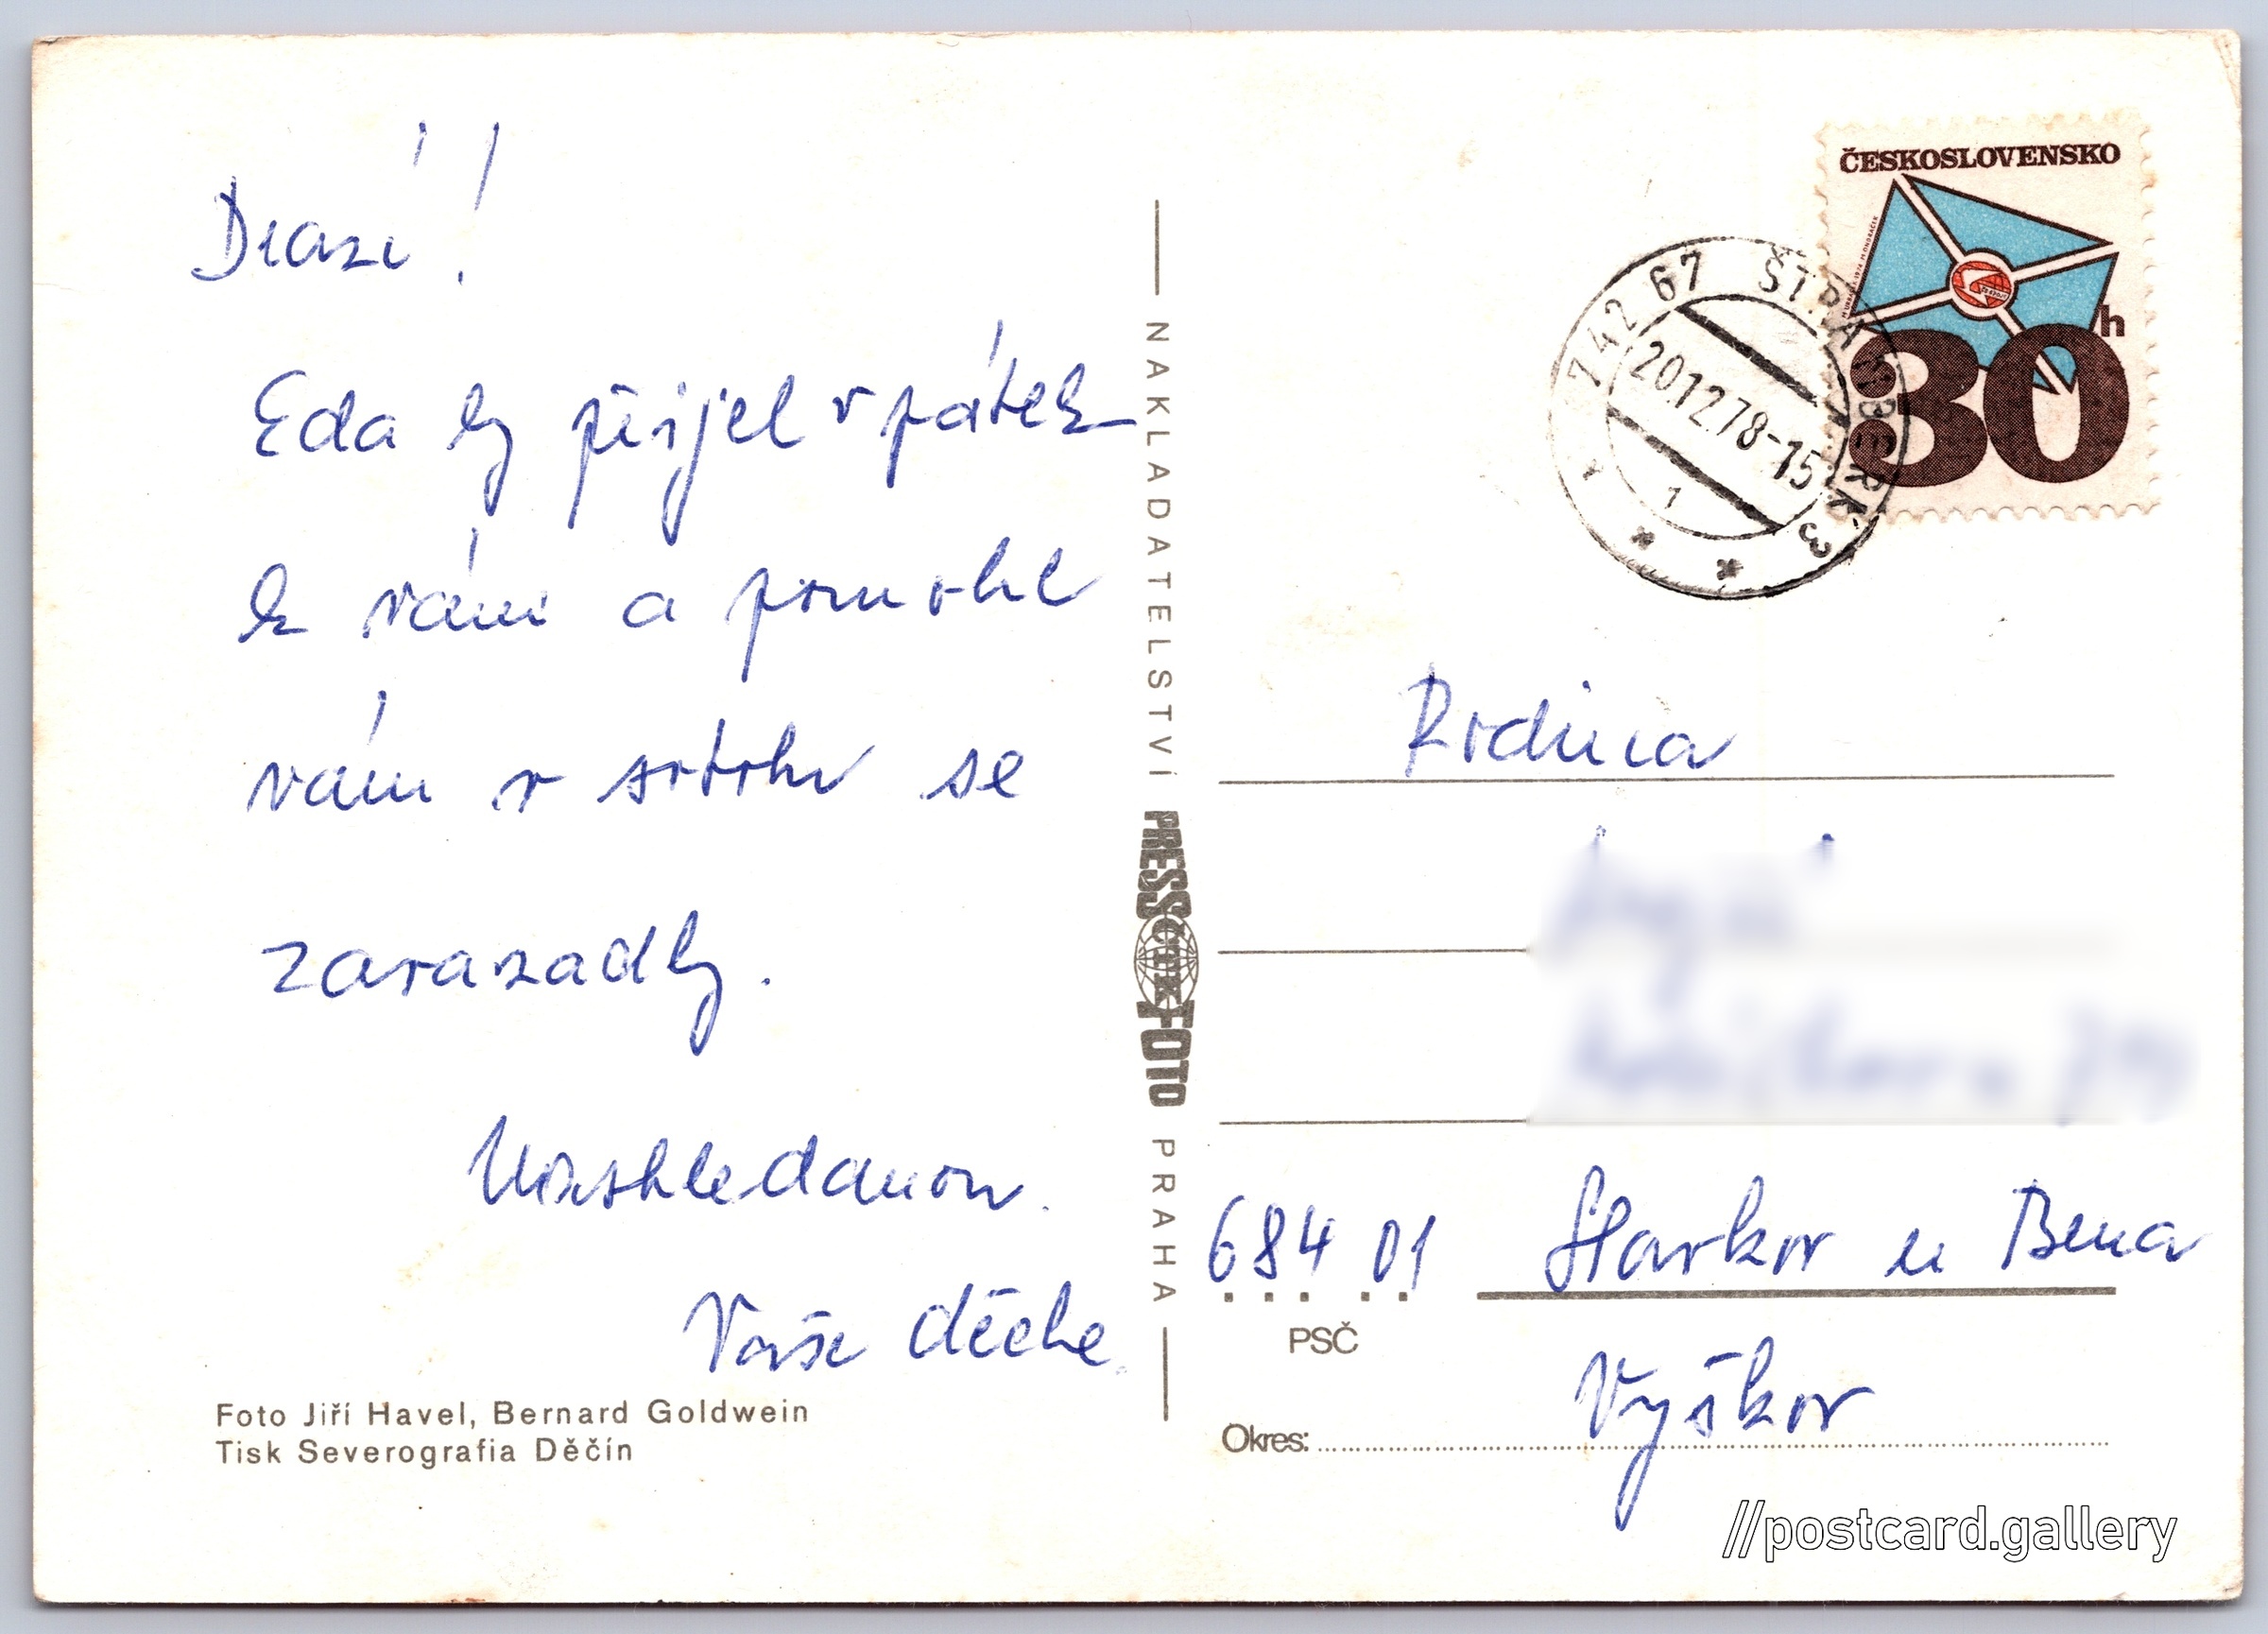 Drazí!
Eda by přijel v pátek
k vám a pomohl
vám v sobotu se
zavazadly.
Nashledanou.
Vaše děcka.
Foto Jiří Havel, Bernard Goldwein
Tisk Severografia Děčín
NAKLADATELSTVÍ PRESSFOTO PRAHA
ČTK
ČESKOSLOVENSKO
30 h
742 67 ŠTRAMBERK 3
20.12.78-15
1
Rodina
684 01 Slavkov u Brna
PSČ
Vyškov
Okres:
//postcard.gallery